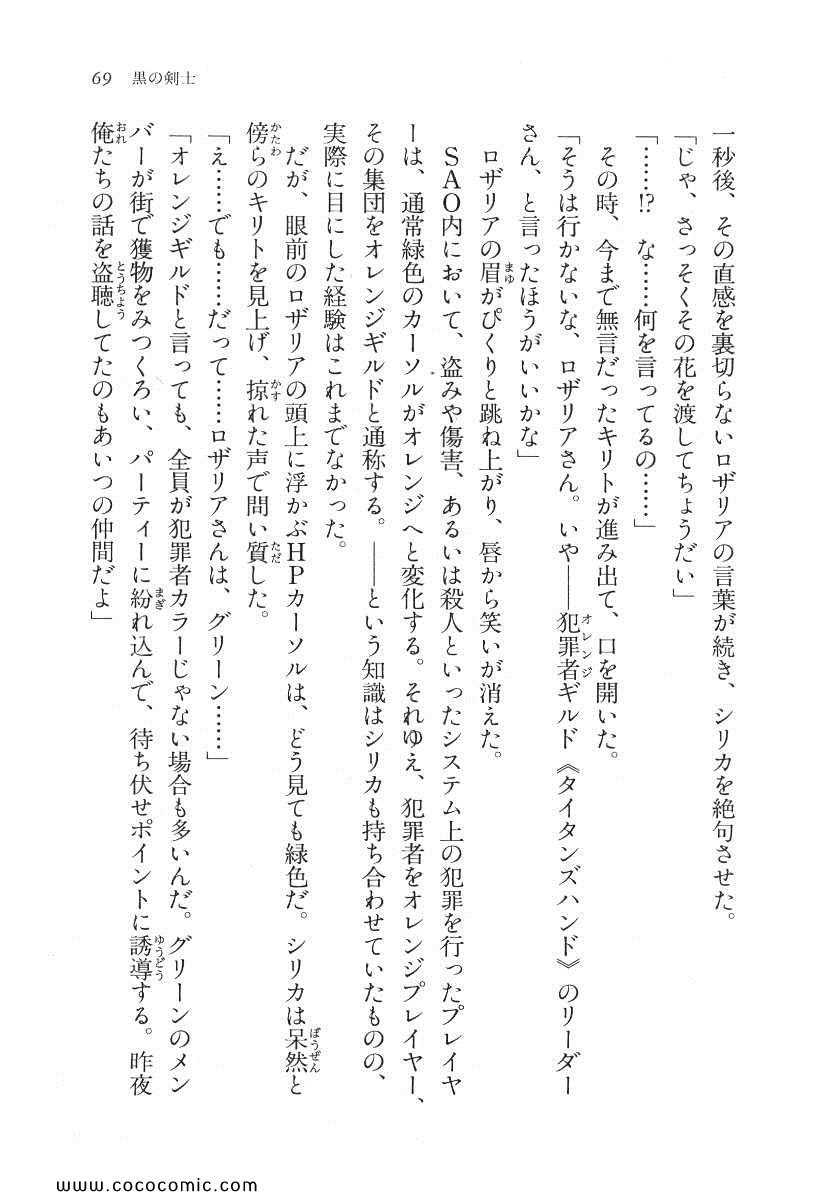 69 黒の剣士
一秒後、その直感を裏切らないロザリアの言葉が続き、シリカを絶句させた。
「じゃ、さっそくその花を渡してちょうだい」
「……!? な……何を言ってるの……」
その時、今まで無言だったキリトが進み出て、口を開いた。
「そうは行かないな、ロザリアさん。いや——犯罪者ギルド《タイタンズハンド》のリーダー
オレンジ
さん、と言ったほうがいいかな」
ロザリアの眉がぴくりと跳ね上がり、唇から笑いが消えた。
まゆ
SAO内において、盗みや傷害、あるいは殺人といったシステム上の犯罪を行ったプレイヤ
ーは、通常緑色のカーソルがオレンジへと変化する。それゆえ、犯罪者をオレンジプレイヤー、
その集団をオレンジギルドと通称する。——という知識はシリカも持ち合わせていたものの、
実際に目にした経験はこれまでなかった。
だが、眼前のロザリアの頭上に浮かぶHPカーソルは、どう見ても緑色だ。シリカは呆然と
ぼうぜん
傍らのキリトを見上げ、掠れた声で問い質した。
かたわ かす ただ
「え……でも……だって……ロザリアさんは、グリーン……」
「オレンジギルドと言っても、全員が犯罪者カラーじゃない場合も多いんだ。グリーンのメン
バーが街で獲物をみつくろい、パーティーに紛れ込んで、待ち伏せポイントに誘導する。昨夜
まぎ ゆうどう
俺たちの話を盗聴してたのもあいつの仲間だよ」
おれ とうちょう
www.cococomic.com